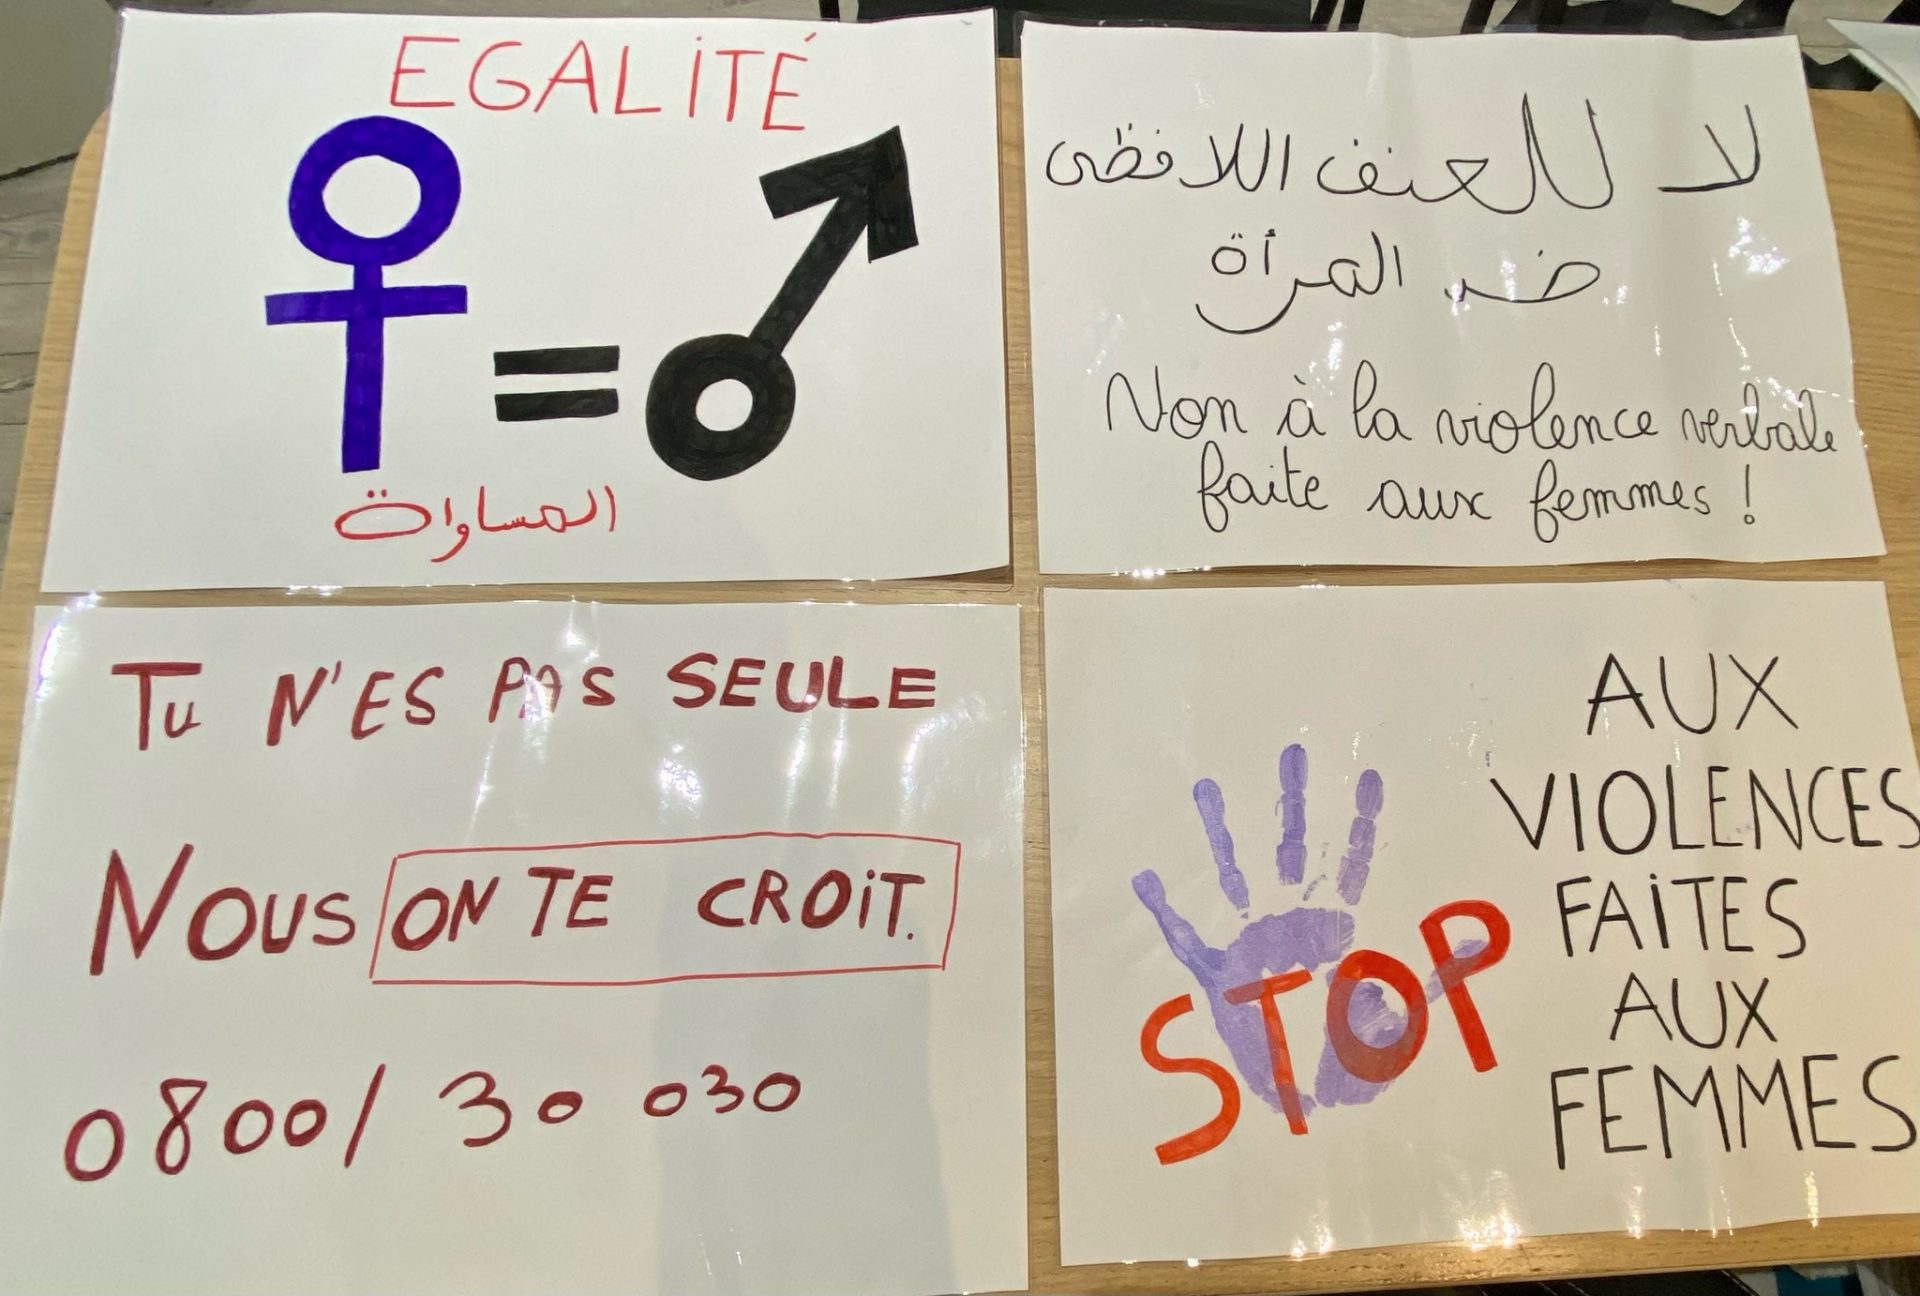 EGALiTÉ
=
المساواة
لا للعنف اللافظي
ضد المرأة
Non à la violence verbale
faite aux femmes !
Tu N'ES PAS SEULE
NOUS ON TE CROiT.
0800/ 30 030
STOP
AUX
VIOLENCES
FAiTES
AUX
FEMMES